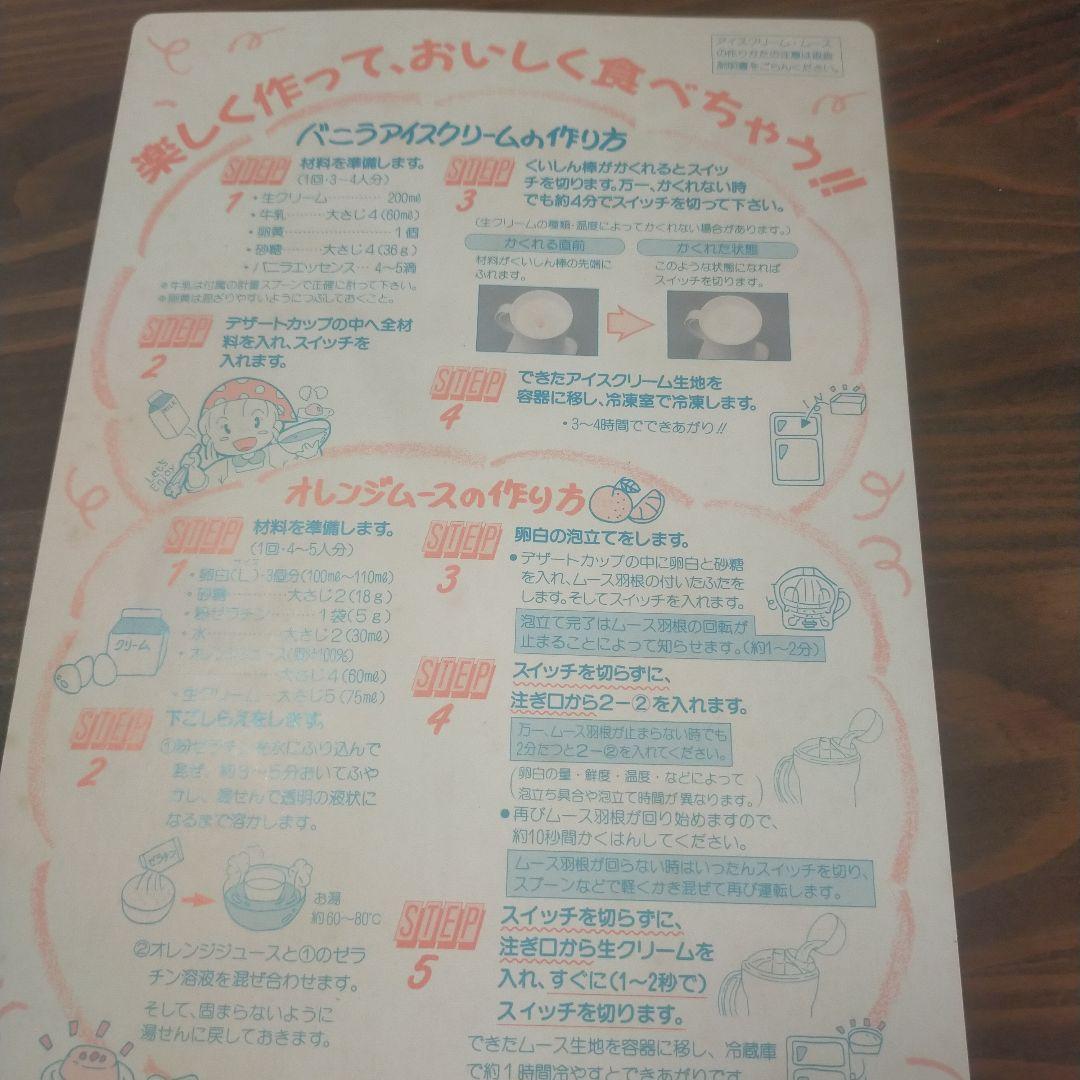 楽しく作って、おいしく食べちゃう!!
アイスクリーム・ムース
の作りかたの注意は取扱
説明書をごらんください。
バニラアイスクリームの作り方
STEP 1
材料を準備します。
(1回・3〜4人分)
・生クリーム…………200㎖
・牛乳………大さじ4(60㎖)
・卵黄……………………1個
・砂糖………大さじ4(36g)
・バニラエッセンス…4〜5滴
※牛乳は付属の計量スプーンで正確に計って下さい。
※卵黄は混ざりやすいようにつぶしておくこと。
STEP 2
デザートカップの中へ全材
料を入れ、スイッチを
入れます。
MILK
Let's
Enjoy
STEP 3
くいしん棒がかくれるとスイッ
チを切ります。万一、かくれない時
でも約4分でスイッチを切って下さい。
(生クリームの種類・温度によってかくれない場合があります。)
かくれる直前
材料がくいしん棒の先端に
ふれます。
かくれた状態
このような状態になれば
スイッチを切ります。
STEP 4
できたアイスクリーム生地を
容器に移し、冷凍室で冷凍します。
・3〜4時間でできあがり!!
IN
オレンジムースの作り方
STEP 1
材料を準備します。
(1回・4〜5人分)
・卵白(Lサイズ)・3個分(100㎖〜110㎖)
・砂糖…………大さじ2(18g)
・粉ゼラチン…………1袋(5g)
・水……………大さじ2(30㎖)
・オレンジジュース(果汁100%)
……………大さじ4(60㎖)
・生クリーム…大さじ5(75㎖)
クリーム
STEP 2
下ごしらえをします。
①粉ゼラチンを水にふり込んで
混ぜ、約3〜5分おいてふや
かし、湯せんで透明の液状に
なるまで溶かします。
ゼラチン
お湯
約60〜80℃
②オレンジジュースと①のゼラ
チン溶液を混ぜ合わせます。
そして、固まらないように
湯せんに戻しておきます。
STEP 3
卵白の泡立てをします。
●デザートカップの中に卵白と砂糖
を入れ、ムース羽根の付いたふたを
します。そしてスイッチを入れます。
泡立て完了はムース羽根の回転が
止まることによって知らせます。(約1〜2分)
STEP 4
スイッチを切らずに、
注ぎ口から2−②を入れます。
万一、ムース羽根が止まらない時でも
2分たつと2−②を入れてください。
(卵白の量・鮮度・温度・などによって
泡立ち具合や泡立て時間が異なります。)
●再びムース羽根が回り始めますので、
約10秒間かくはんしてください。
ムース羽根が回らない時はいったんスイッチを切り、
スプーンなどで軽くかき混ぜて再び運転します。
STEP 5
スイッチを切らずに、
注ぎ口から生クリームを
入れ、すぐに(1〜2秒で)
スイッチを切ります。
できたムース生地を容器に移し、冷蔵庫
で約1時間冷やすとできあがりです